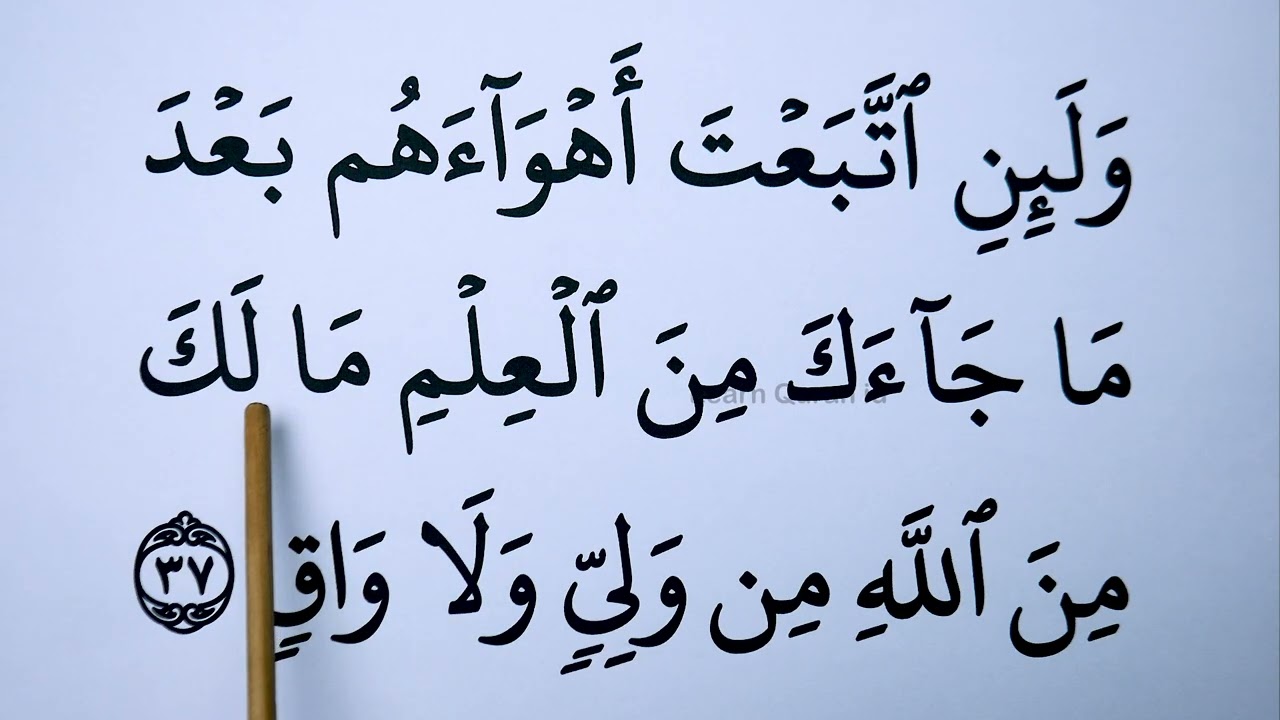 وَلَئِنِ ٱتَّبَعْتَ أَهْوَآءَهُم بَعْدَ
مَا جَآءَكَ مِنَ ٱلْعِلْمِ مَا لَكَ
Learn Quran id
مِنَ ٱللَّهِ مِن وَلِىٍّ وَلَا وَاقٍ ٣٧